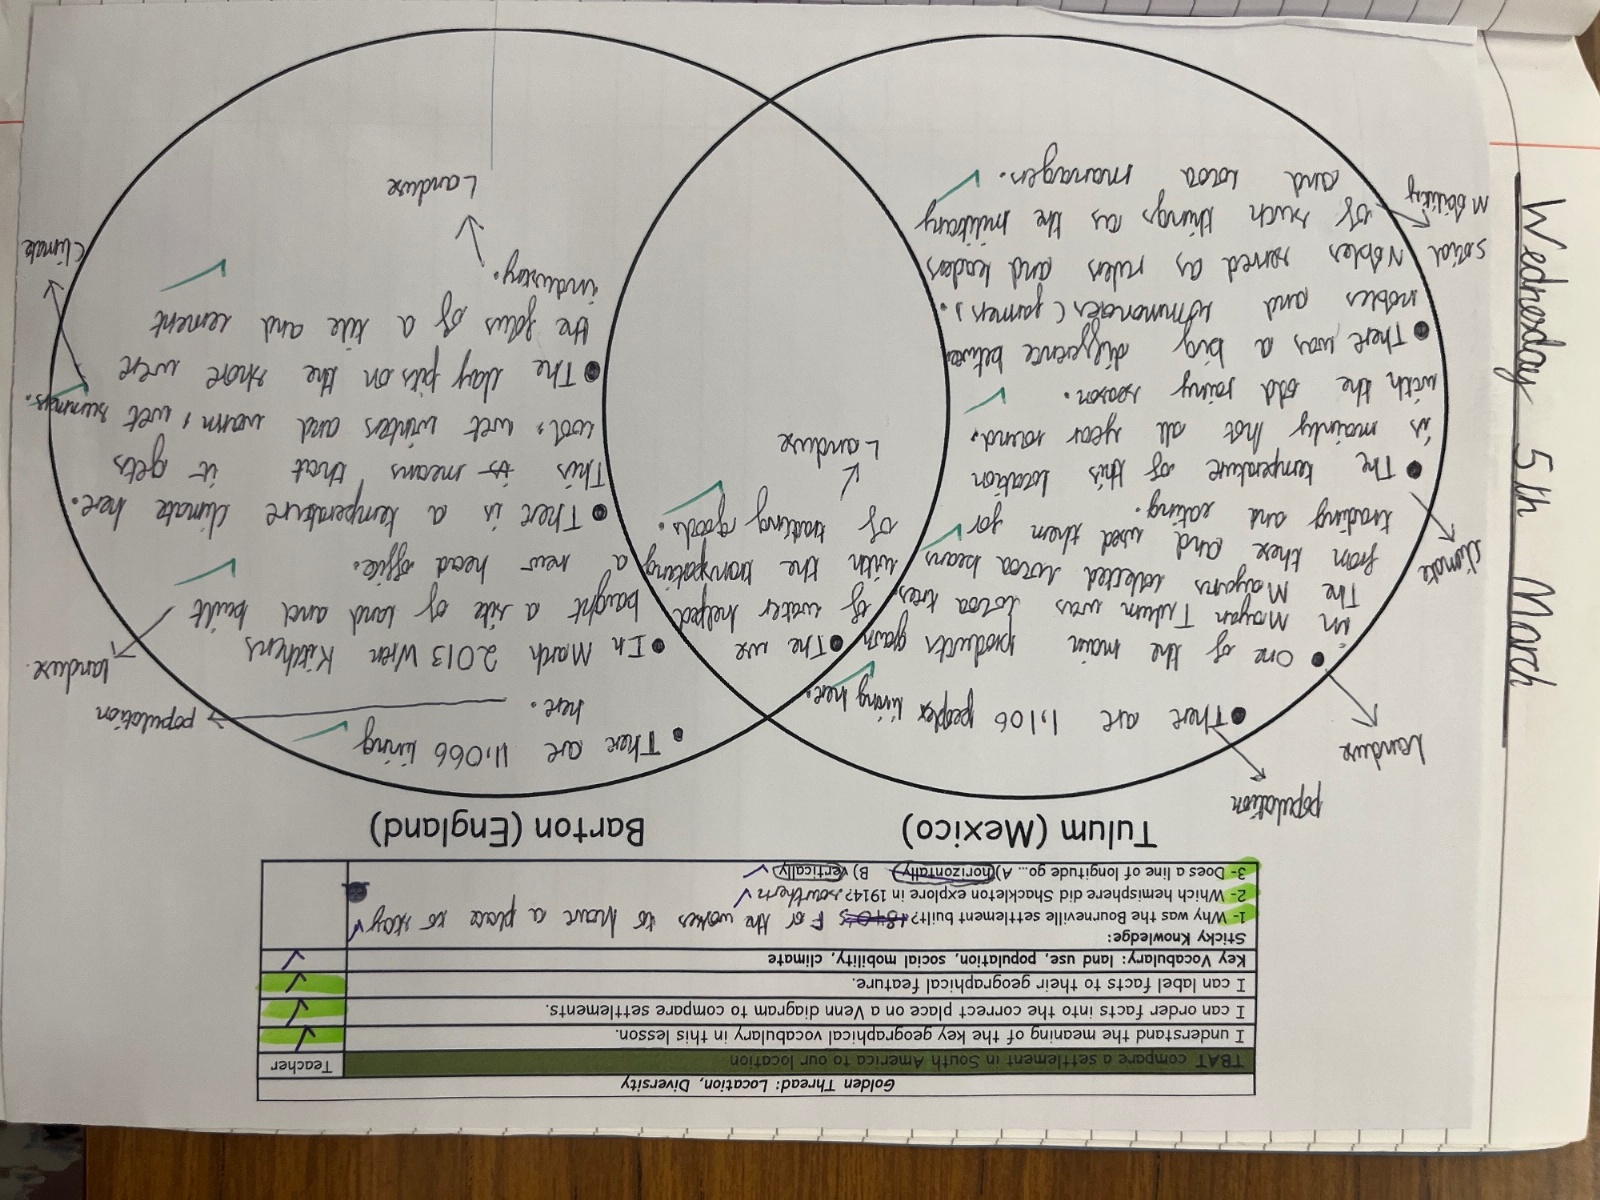 Wednesday 5th March
Golden Thread: Location, Diversity
TBAT compare a settlement in South America to our location
Teacher
I understand the meaning of the key geographical vocabulary in this lesson.
I can order facts into the correct place on a Venn diagram to compare settlements.
I can label facts to their geographical feature.
Key Vocabulary: land use, population, social mobility, climate
Sticky Knowledge:
1- Why was the Bourneville settlement built? 1840s For the workes to have a place to stay
2- Which hemisphere did Shackleton explore in 1914? southern
3- Does a line of longitude go... A) horizontally B) vertically
Tulum (Mexico)
population
Landuse
• There are 1,106 peoples living here.
• One of the main products gawn
in Mayan Tulum was cocoa trees.
The Mayans colected cocoa beans
from these and used them for
trading and eating.
climate
• The temperature of this location
is mainly hot all year round,
with the odd rainy season.
• There was a big difference betwee
nobles and commoners (farmers).
Nobles served as rulers and leaders
of such things as the military
and cocoa managers.
social
mobility
• The use
of water helped
with the transpating
of trading goods.
Landuse
Barton (England)
• There are 11,066 living
here.
population
• In March 2013 Wren Kitchens
bought a site of land and built
a new head office.
landuse
• There is a temperature climate here.
This is means that it gets
cool, wet winters and warm, wet summers.
Climate
• The clay pits on the shore were
the focus of a tile and cement
industry.
Landuse